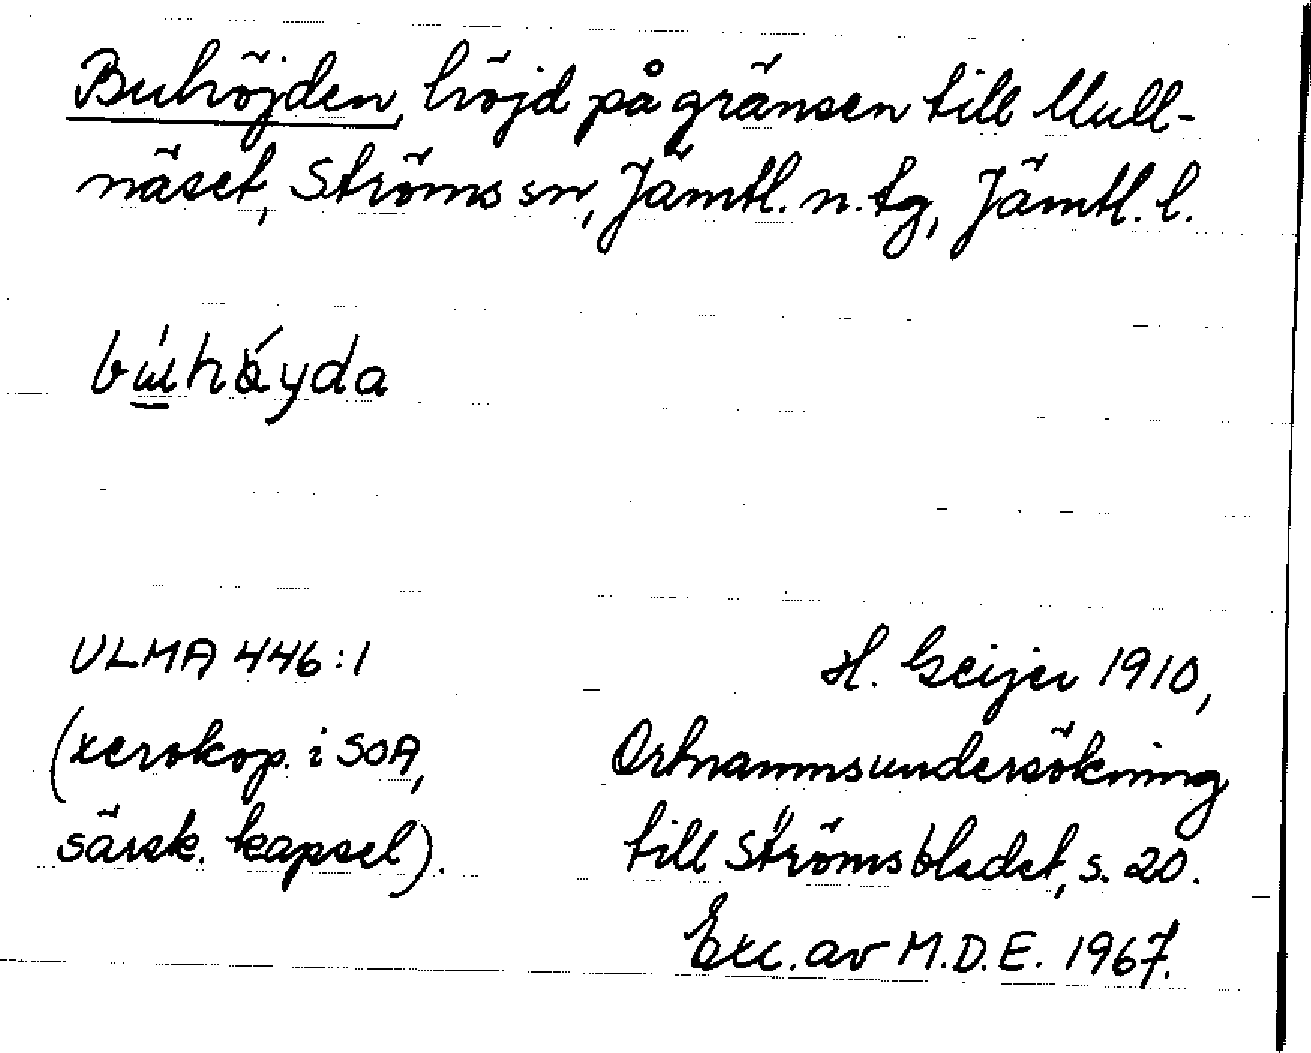 Buhöjden, höjd på gränsen till Mull-
näset, Ströms sn, Jämtl. n. tg, Jämtl. l.
ULMA 446:1
(xerokop. i SOA,
särsk. kapsel).
H. Geijer 1910,
Ortnamnsundersökning
till Strömsbladet, s. 20.
Exc. av M.D.E. 1967.